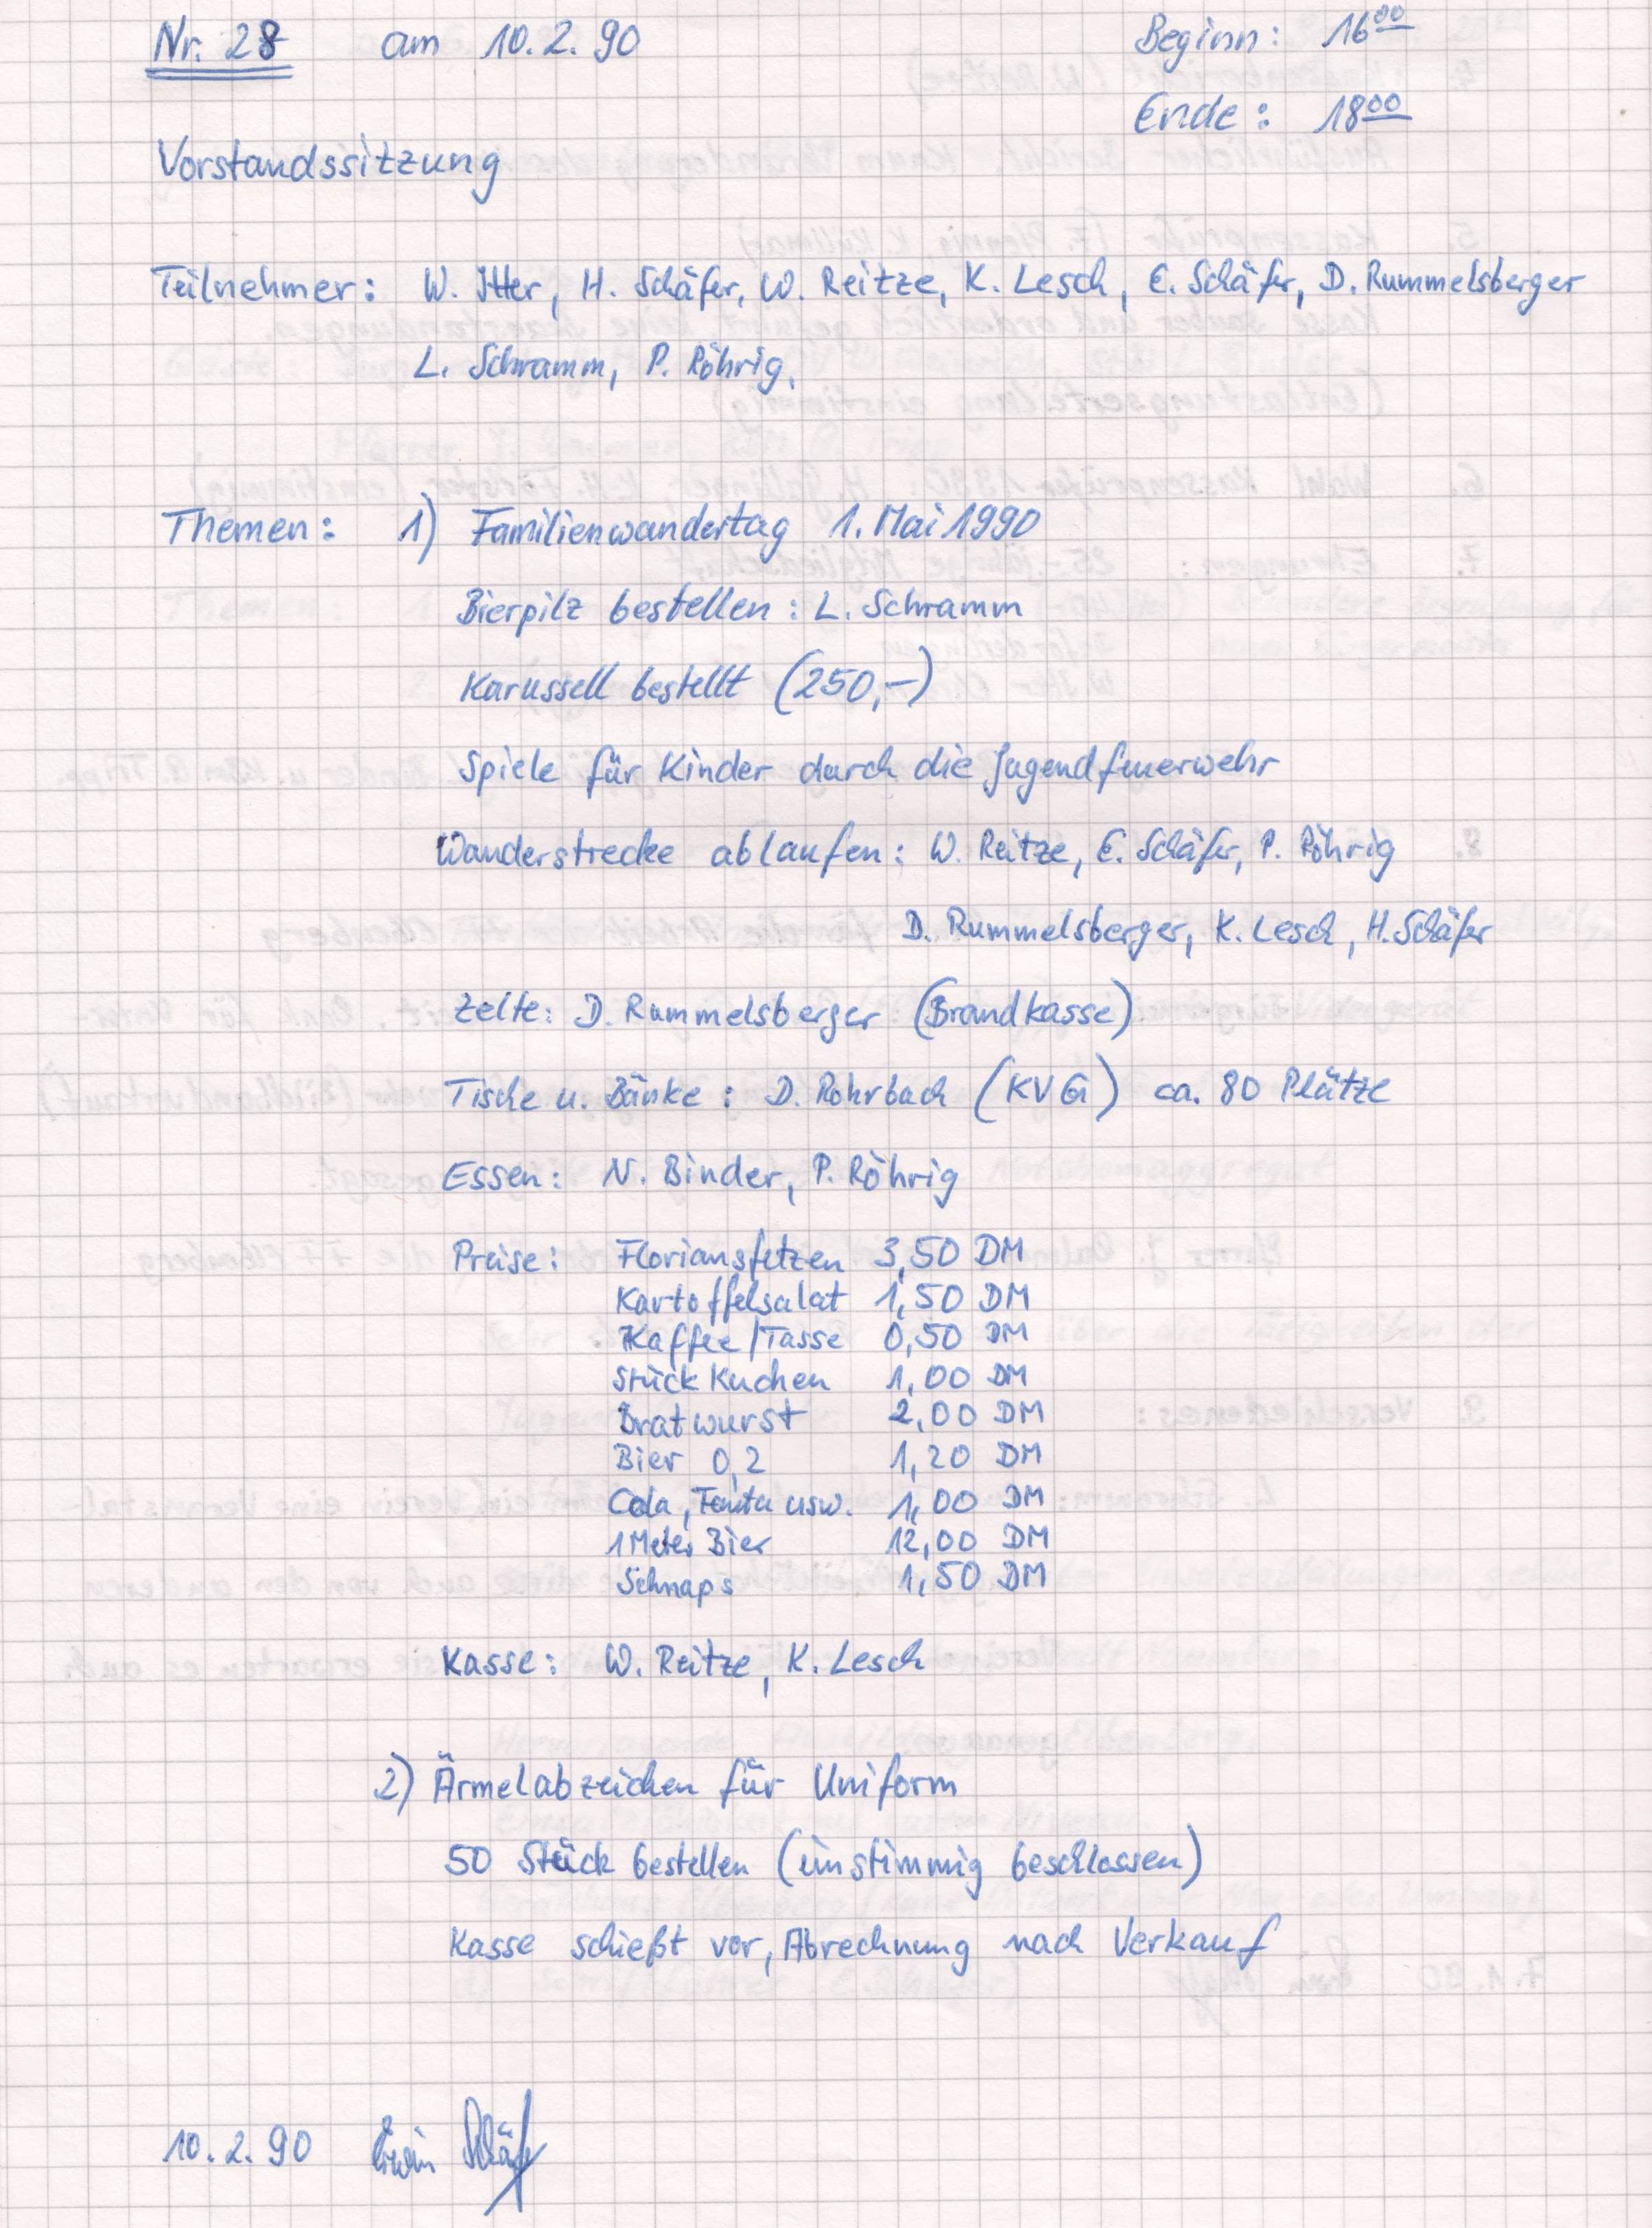 Nr. 28 am 10.2.90 Beginn: 16⁰⁰
Ende: 18⁰⁰
Vorstandssitzung
Teilnehmer: W. Itter, H. Schäfer, W. Reitze, K. Lesch, E. Schäfer, D. Rummelsberger
L. Schramm, P. Röhrig.
Themen: 1) Familienwandertag 1. Mai 1990
Bierpilz bestellen: L. Schramm
Karussell bestellt (250,-)
Spiele für Kinder durch die Jugendfeuerwehr
Wanderstrecke ablaufen: W. Reitze, E. Schäfer, P. Röhrig
D. Rummelsberger, K. Lesch, H. Schäfer
Zelte: D. Rummelsberger (Brandkasse)
Tische u. Bänke: D. Rohrbach (KVG) ca. 80 Plätze
Essen: N. Binder, P. Röhrig
Preise: Floriansfetzen 3,50 DM
Kartoffelsalat 1,50 DM
Kaffee/Tasse 0,50 DM
Stück Kuchen 1,00 DM
Bratwurst 2,00 DM
Bier 0,2 1,20 DM
Cola, Fanta usw. 1,00 DM
1 Meter Bier 12,00 DM
Schnaps 1,50 DM
Kasse: W. Reitze, K. Lesch
2) Ärmelabzeichen für Uniform
50 Stück bestellen (einstimmig beschlossen)
Kasse schießt vor, Abrechnung nach Verkauf
10.2.90 Erwin Schäfer